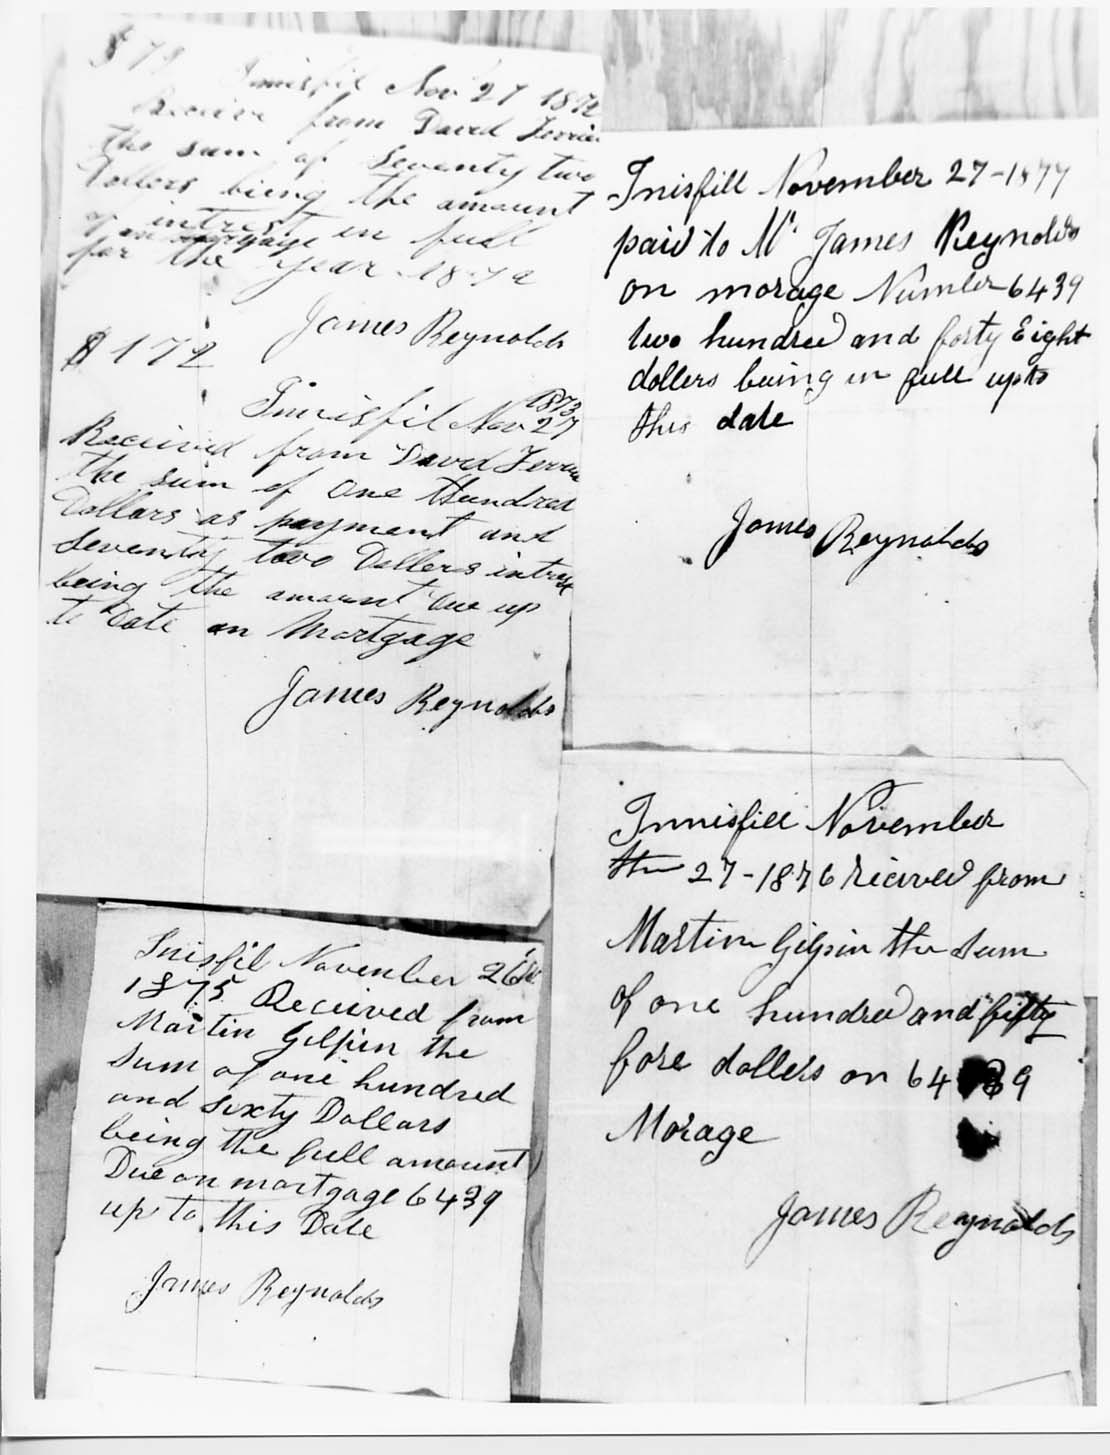 $72
Innisfil Nov 27 1872
Receive from David Ferrier
the sum of Seventy two
Dollers being the amount
of intrest in full
on mortgage
for the year 1872
James Reynolds
$172
Innisfil Nov 27
1873
Received from David Ferrier
the sum of One Hundred
Dollars as payment and
Seventy two Dollers intrest
being the amount Due up
to Date on Mortgage
James Reynolds
Inisfil November 26th
1875 Received from
Martin Gilpin the
sum of one hundred
and sixty Dollars
being the full amount
Due on mortgage 6439
up to this Date
James Reynolds
Inisfill November 27-1877
paid to Mr James Reynolds
on morage Number 6439
two hundred and forty Eight
dollers being in full up to
this date
James Reynolds
Innisfill November
the 27-1876 recived from
Martin Gilpin the sum
of one hundred and fifty
fore dollers on 6439
Morage
James Reynolds